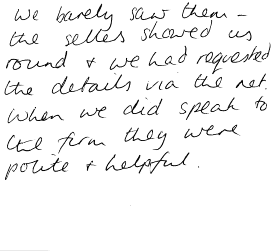 We barely saw them -
the selles showed us
round + we had requested
the details via the net.
When we did speak to
the firm they were
polite + helpful.